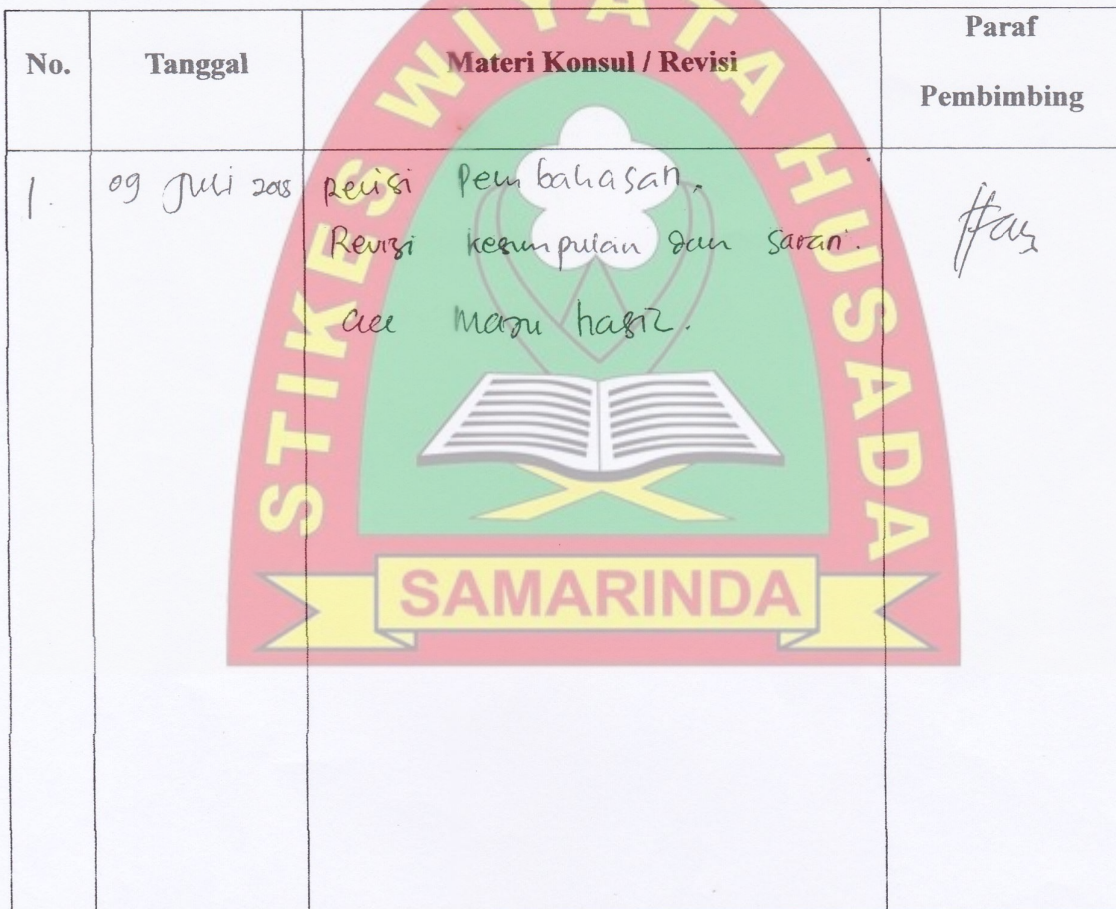 No. Tanggal Materi Konsul / Revisi Paraf Pembimbing
1. 09 Juli 2018 Revisi Pembahasan.
Revisi kesimpulan dan saran.
acc maju hasil.
STIKES WIYATA HUSADA
SAMARINDA